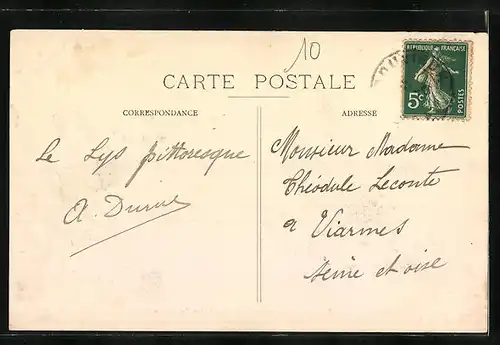 10
CARTE POSTALE
RÉPUBLIQUE FRANÇAISE
5c
POSTES
CORRESPONDANCE
Le Lys pittoresque
A.
ADRESSE
Monsieur Madame
Théodule Leconte
a Viarmes
Seine et oise